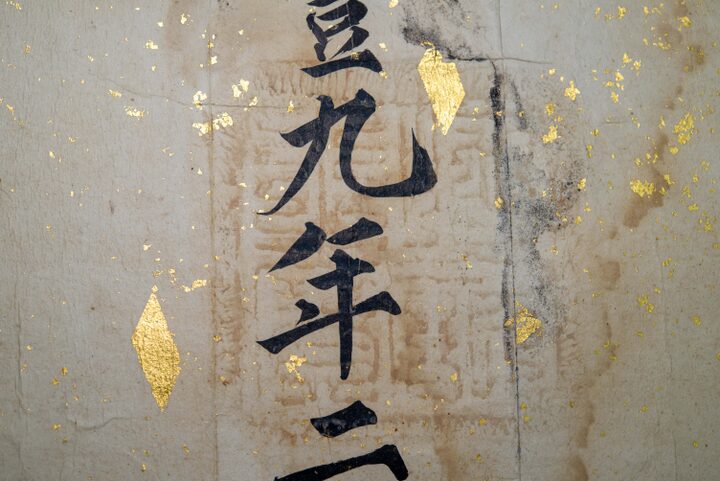 九年二